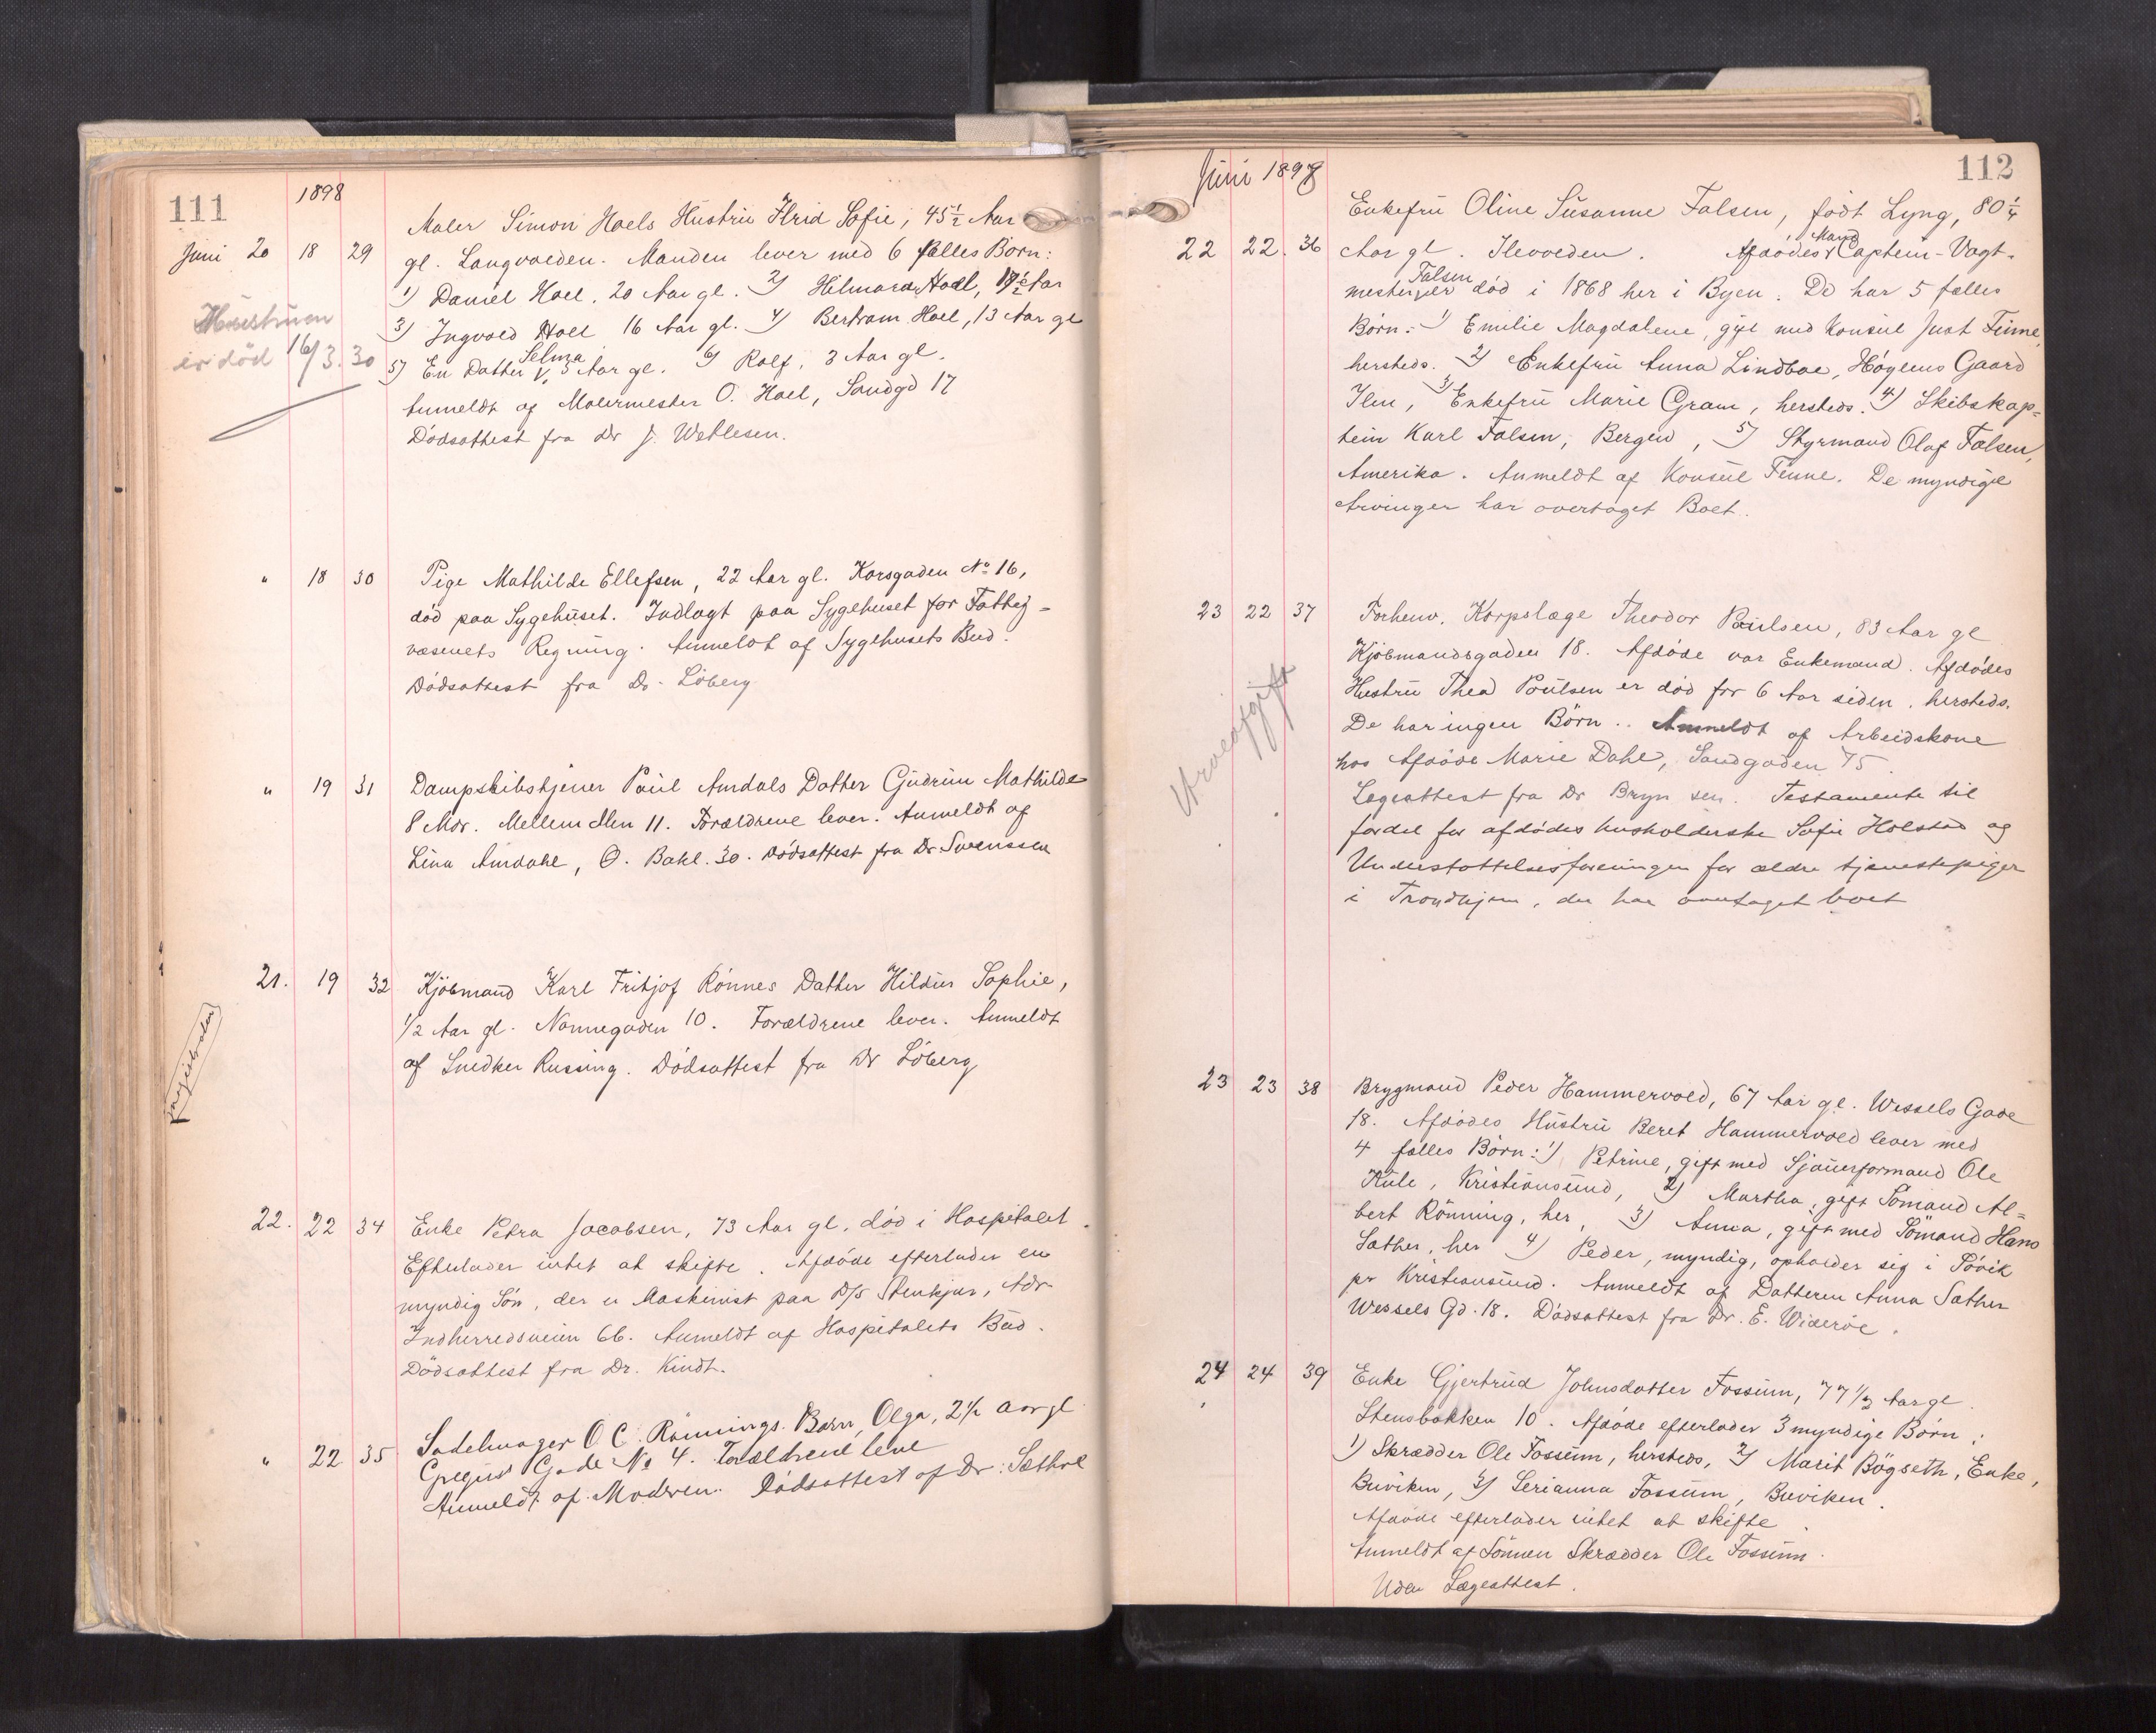 111
1898
Maler Simon Hoels Hustru Sofie, 45½ Aar
Juni 20 18 29 gl. Langvolden. Manden lever med 6 fælles Børn:
1) Daniel Hoel, 20 Aar gl. 2) Hoel, Aar
3) Ingvald Hoel 16 Aar gl. 4) Bertram Hoel, 13 Aar gl
5) En Datter Selma, 5 Aar gl. 6) Rolf, 3 Aar gl.
Anmeldt af Malermester O. Hoel, Sandgd 17
Dödsattest fra Dr J. Wetlesen.
Hustruen
er død 16/3.30
" 18 30 Pige Mathilde Ellefsen, 22 Aar gl. Korsgaden No 16,
død paa Sygehuset. Indlagt paa Sygehuset for Fattig-
væsenets Regning. Anmeldt af Sygehusets Bud.
Dödsattest fra Dr. Löberg
" 19 31 Dampskibstjener Paul Amdals Datter Gudrun Mathilde
8 Mdr. Mellem Ilen 11. Forældrene lever. Anmeldt af
Lina Amdahl, O. Bakl. 30. Dödsattest fra Dr Svenssen
21. 19 32 Kjöbmand Karl Fritjof Rönnes Datter Hildur Sophie,
1/2 Aar gl. Nonnegaden 10. Forældrene lever. Anmeldt
af Snedker Russing. Dödsattest fra Dr Löberg
22. 22 34 Enke Petra Jacobsen, 73 Aar gl. død i Hospitalet.
Efterlader intet at skifte. Afdöde efterlader en
myndig Sön, der er Maskinist paa D/S Stenkjær, Adr
Indherredsveien 66. Anmeldt af Hospitalets Bud.
Dödsattest fra Dr. Kindt.
" 22 35 Sadelmager O C. Rönnings Barn, Olga, 2½ Aar gl
Gade No 4. Forældrene leve
Anmeldt af Moderen. Dödsattest af Dr: Sæthre
112
Juni 1898
Enkefru Oline Susanne Falsen, født Lyng, 80¼
22 22. 36 Aar gl. Ilevolden. Afdödes Mand Captein-Vagt-
mester Falsen død i 1868 her i Byen. De har 5 fælles
Börn: 1) Emilie Magdalene, gift med Konsul Just Finne,
hersteds. 2) Enkefru Anna Lindboe, Höyems Gaard
Ilen, 3) Enkefru Marie Gram, hersteds. 4) Skibskap-
tein Karl Falsen, Bergen, 5) Styrmand Olaf Falsen,
Amerika. Anmeldt af Konsul Finne. De myndige
Arvinger har overtaget Boet.
23 22 37 Forhenv. Korpslæge Theodor Poulsen, 83 Aar gl
Kjöbmandsgaden 18. Afdöde var Enkemand. Afdödes
Hustru Thea Poulsen er död for 6 Aar siden, hersteds.
De har ingen Börn.. Anmeldt af Arbeidskone
hos Afdöde Marie Dahl, Sandgaden 75.
Lægeattest fra Dr Bryn sen. Testamente til
fordel for afdødes husholderske Sofie Holstad og
Understøttelsesforeningen for ældre tjenestepiger
i Trondhjem, der har overtaget boet
Arveafgift
23 23 38 Brygmand Peder Hammervold, 67 Aar gl. Wessels Gade
18. Afdödes Hustru Beret Hammervold lever med
4 fælles Börn: 1) Petrine, gift med Sjauerformand Ole
Kule, Kristiansund, 2) Martha, gift Sömand Al-
bert Rönning, her, 3) Anna, gift med Sömand Hans
Sæther, her 4) Peder, myndig, opholder sig i
pr Kristiansund. Anmeldt af Datteren Anna Sæther
Wessels Gd. 18. Dödsattest fra Dr. E. Wideröe.
24 24 39 Enke Gjertrud Johnsdatter Fossum, 77 1/2 Aar gl.
Stensbakken 10. Afdöde efterlader 3 myndige Börn:
1) Skrædder Ole Fossum, hersteds, 2) Marit Bögseth, Enke,
Buviken, 3) Serianna Fossum, Buviken.
Afdöde efterlader intet at skifte.
Anmeldt af Sönnen Skrædder Ole Fossum.
Uden Lægeattest.